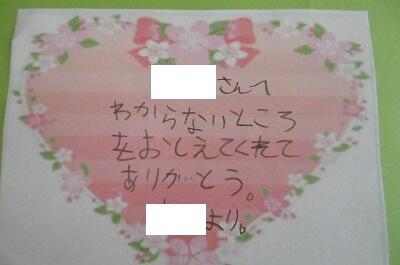 さんへ
わからないところ
をおしえてくれて
ありがとう。
より。